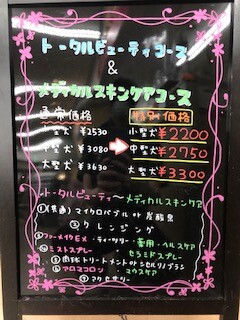 トータルビューティコース
&
メディカルスキンケアコース
通常価格 特別価格
小型犬 ¥2530 小型犬 ¥2200
中型犬 ¥3080 中型犬 ¥2750
大型犬 ¥3630 大型犬 ¥3300
トータルビューティ〜メディカルスキンケア
①(共通)マイクロバブル or 炭酸泉
②クレンジング
③ファーメイクEX・ティーツリー・薬用・ヘルスケア
④ミストスプレー セラミドスプレー
⑤肉球トリートメント or
⑥アロマコロン マウスケア
⑦アクセサリー